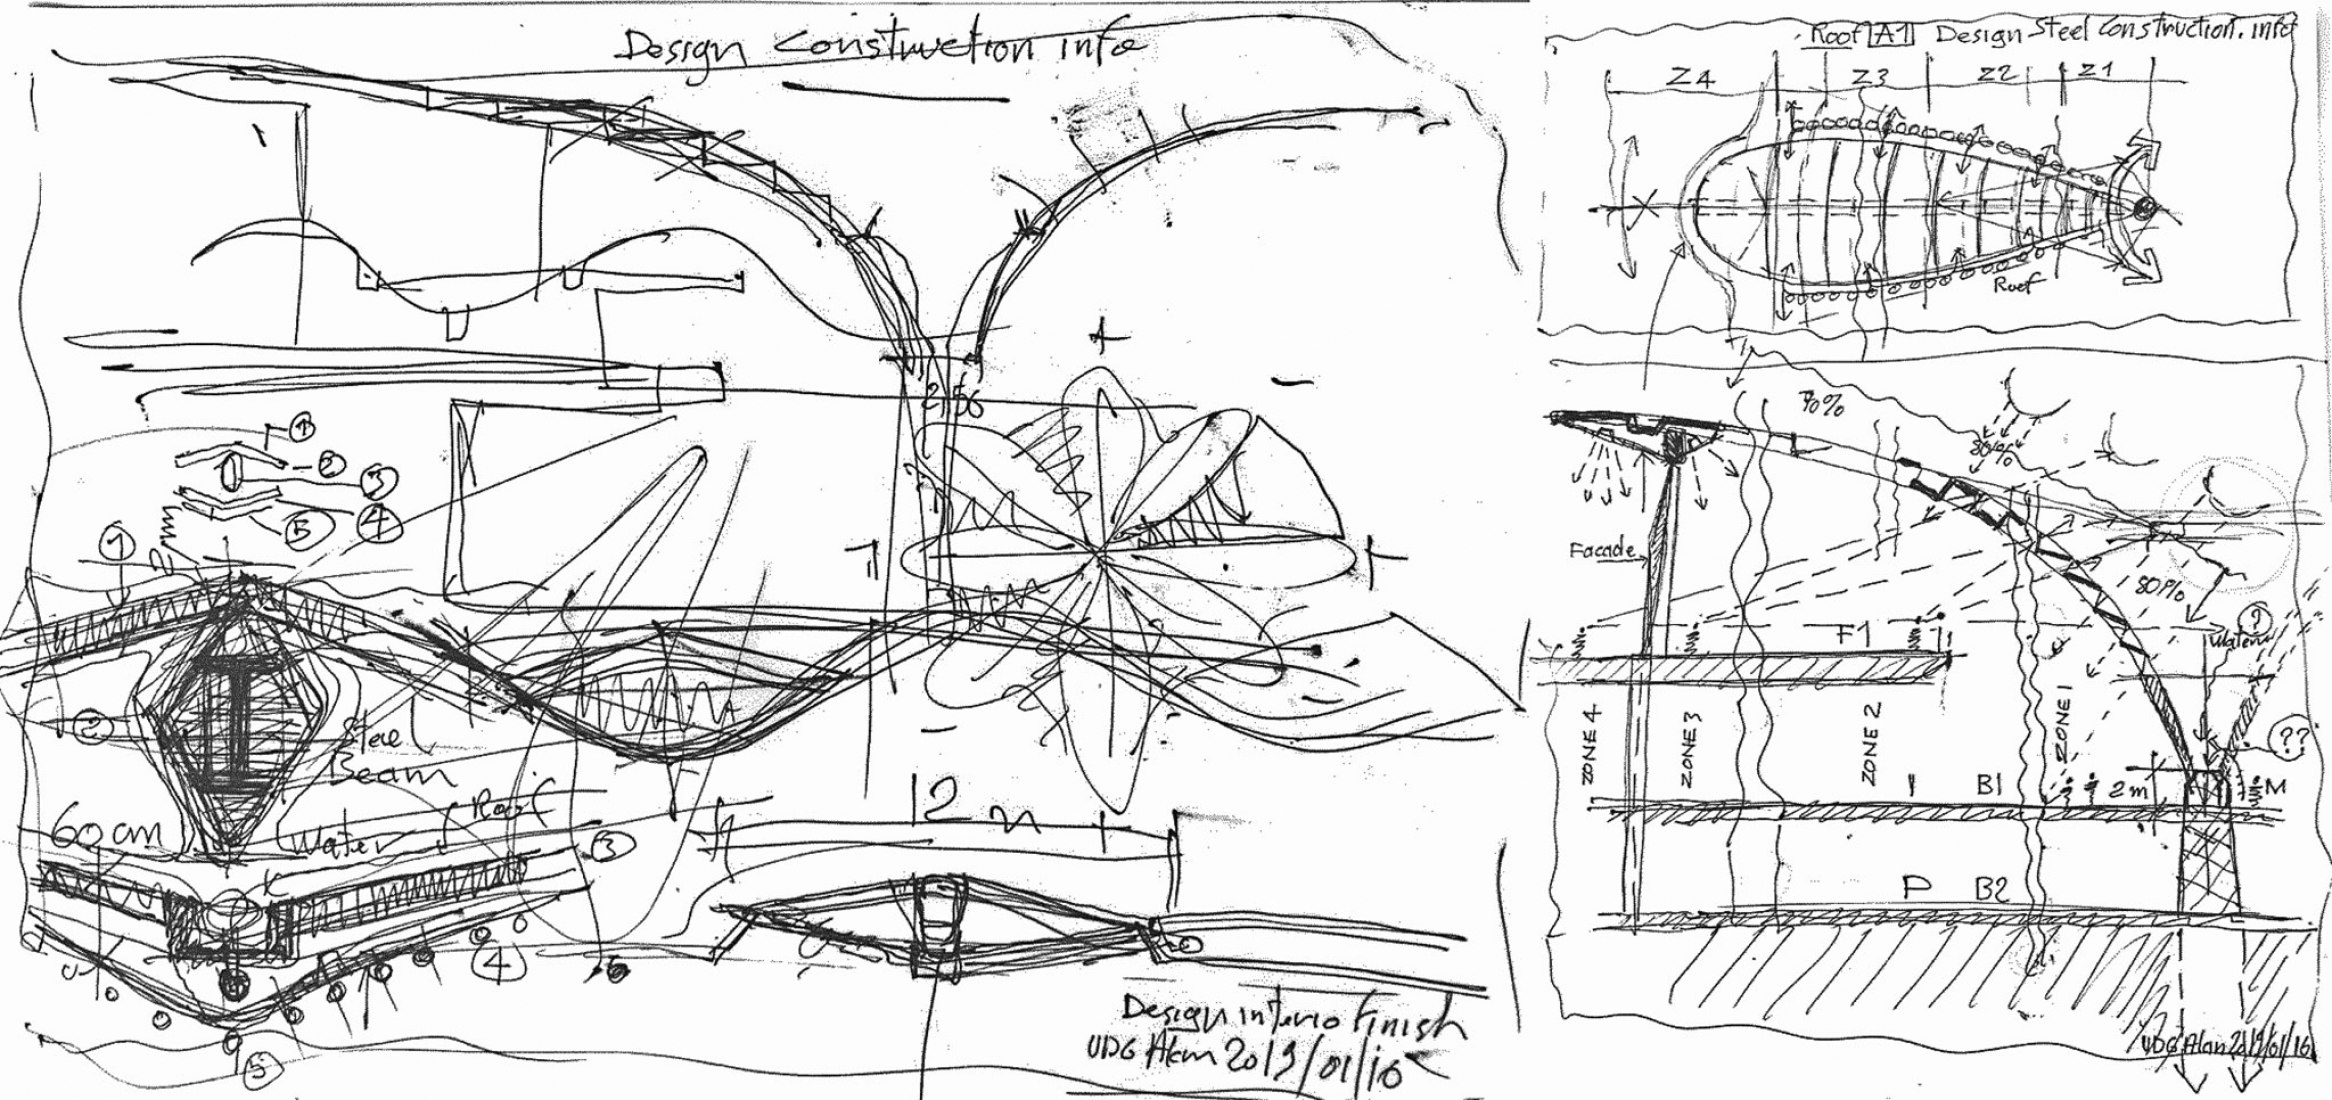 Design Construction info
2,56
1
2
3
4
5
1
2
Steel
Beam
60 cm
Water
Roof
3
4
5
12 m
Design interio Finish
UDG Alan 2019/01/16
Roof A1 Design Steel Construction. info
Z4 Z3 Z2 Z1
Roof
70%
80%
80%
Facade
F1
?
Water
??
ZONE 4
ZONE 3
ZONE 2
ZONE 1
B1
2m
M
P B2
UDG Alan 2019/01/16